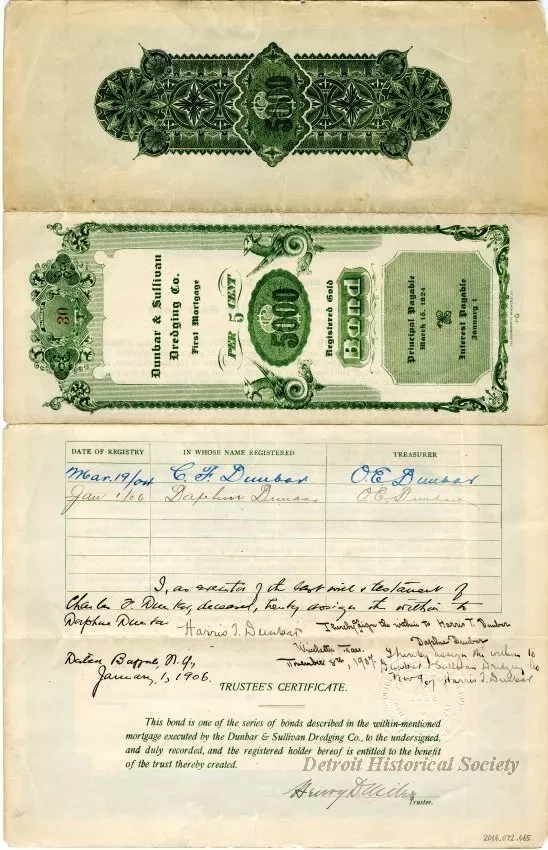 $5000
30
Dunbar & Sullivan
Dredging Co.
First Mortgage
5 PER CENT
$5000
Registered Gold
Bond
Principal Payable
March 15, 1924
Interest Payable
January 1
DATE OF REGISTRY IN WHOSE NAME REGISTERED TREASURER
Mar. 19/04 C. F. Dunbar O.E. Dunbar
Jan 1/06 Daphne Dunbar O.E. Dunbar
I, as executor of the last will & testament of
Charles F. Dunbar, deceased, hereby assign the within to
Daphne Dunbar
Harris T. Dunbar
I hereby assign the within to Harris T. Dunbar
Daphne Dunbar
November 8th, 1907.
I hereby assign the within to
Dunbar & Sullivan Dredging Co
Harris T. Dunbar
Dated, Buffalo, N.Y.,
January, 1, 1906.
TRUSTEE'S CERTIFICATE.
This bond is one of the series of bonds described in the within-mentioned
mortgage executed by the Dunbar & Sullivan Dredging Co., to the undersigned,
and duly recorded, and the registered holder hereof is entitled to the benefit
of the trust thereby created.
Detroit Historical Society
Henry D. Miles
Trustee.
2016.072.065